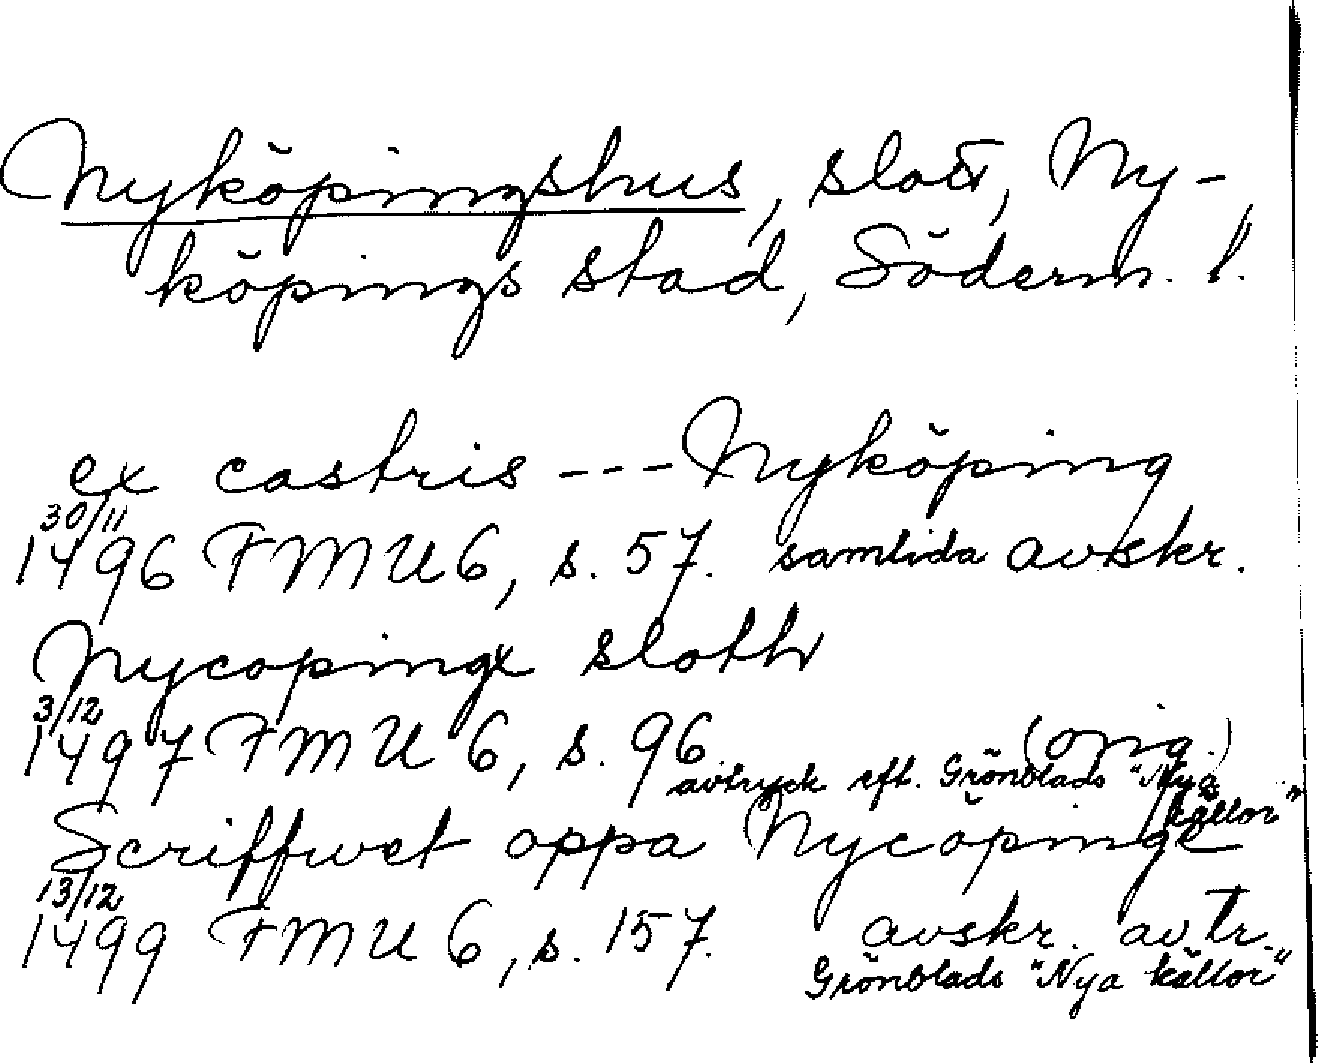 Nyköpingshus, slott, Ny-
köpings stad, Söderm. l.
ex castris --- Nyköping
30/11
1496 FMU 6, s. 57. samtida avskr.
Nycopingx sloth
3/12
1497 FMU 6, s. 96 (orig.)
avtryck eft. Grönblads "Nya
källor"
Scriffwet oppa Nycöpinge
13/12
1499 FMU 6, s. 157. avskr. avtr.
Grönblads "Nya källor"